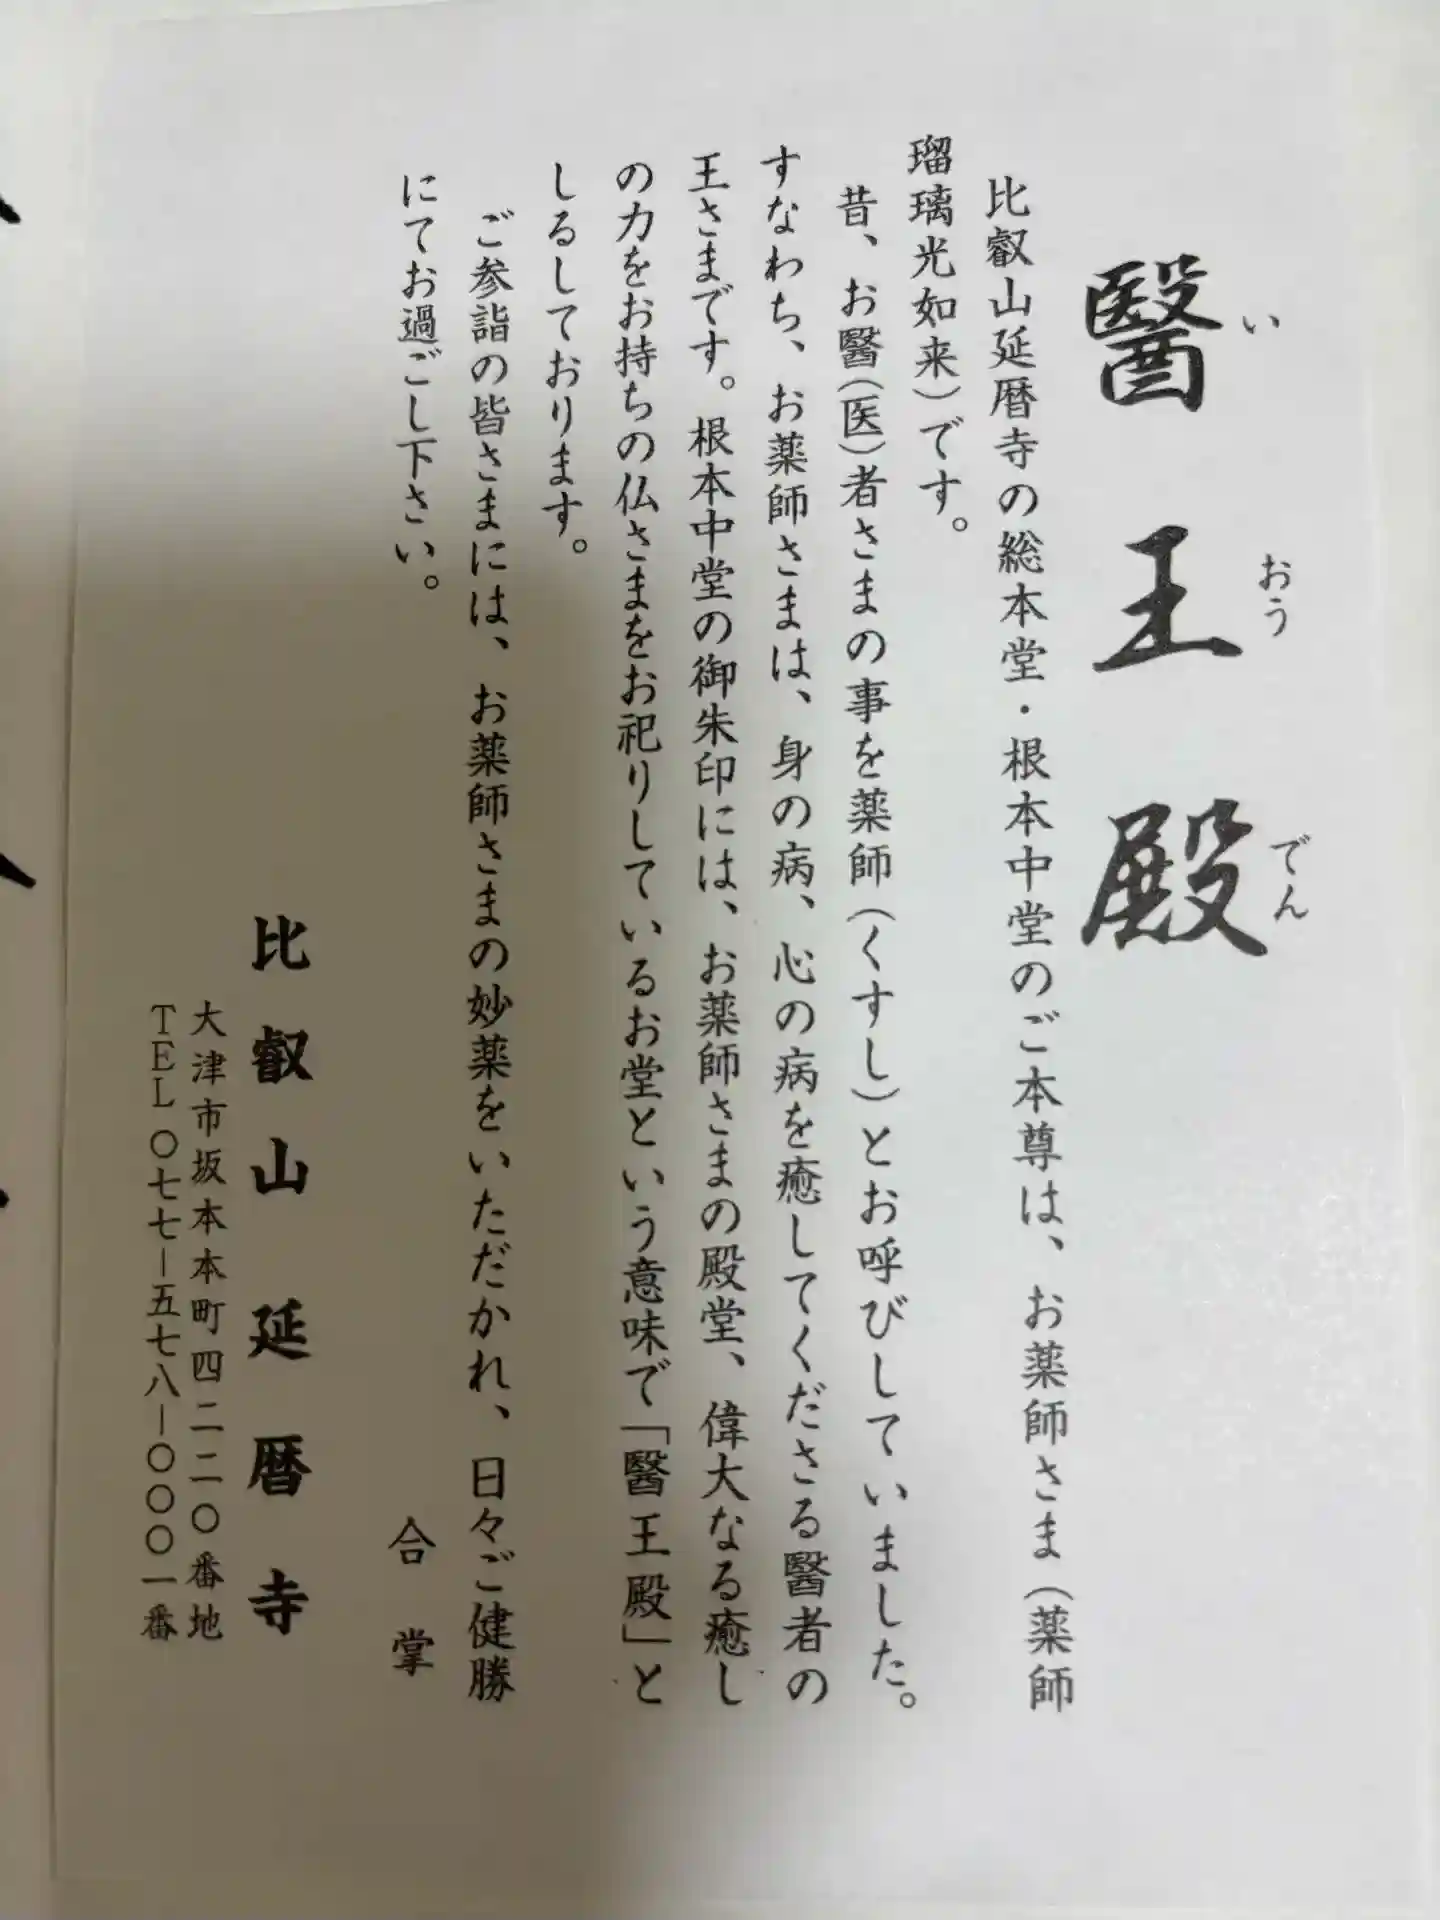 醫王殿
い おう でん
比叡山延暦寺の総本堂・根本中堂のご本尊は、お薬師さま（薬師
瑠璃光如来）です。
昔、お醫（医）者さまの事を薬師（くすし）とお呼びしていました。
すなわち、お薬師さまは、身の病、心の病を癒してくださる醫者の
王さまです。根本中堂の御朱印には、お薬師さまの殿堂、偉大なる癒し
の力をお持ちの仏さまをお祀りしているお堂という意味で「醫王殿」と
しるしております。
ご参詣の皆さまには、お薬師さまの妙薬をいただかれ、日々ご健勝
にてお過ごし下さい。
合掌
比叡山延暦寺
大津市坂本本町四二二〇番地
ＴＥＬ〇七七－五七八－〇〇〇一番